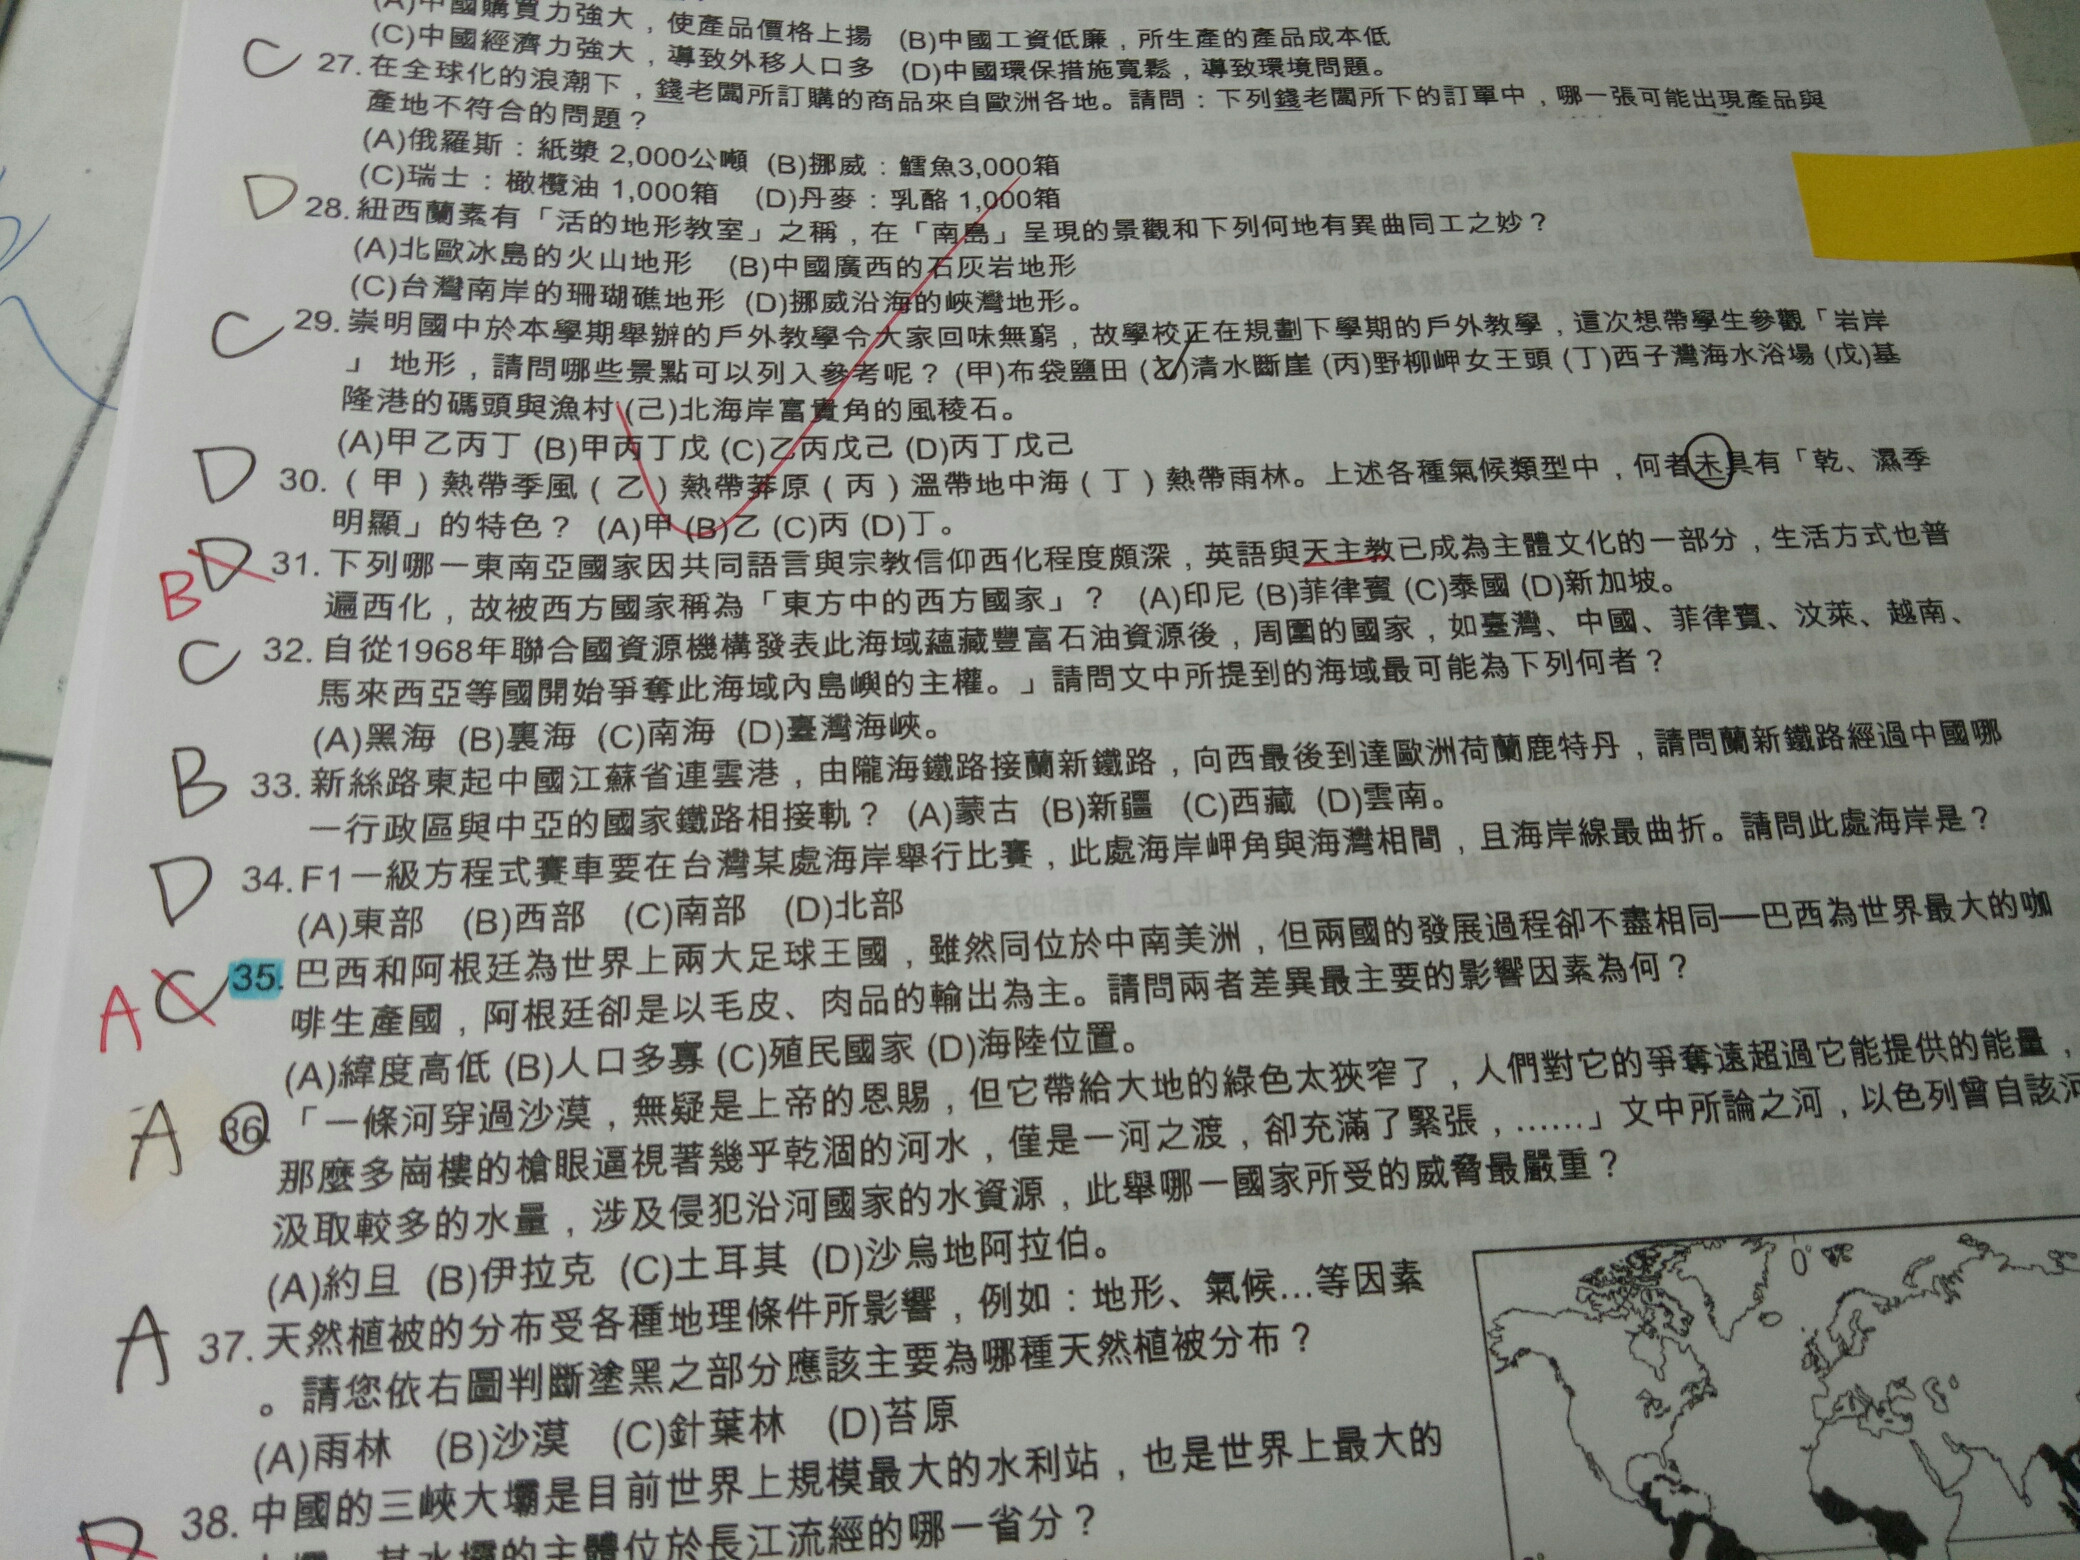 (A)中國購買力強大，使產品價格上揚 (B)中國工資低廉，所生產的產品成本低
(C)中國經濟力強大，導致外移人口多 (D)中國環保措施寬鬆，導致環境問題。
C 27.在全球化的浪潮下，錢老闆所訂購的商品來自歐洲各地。請問：下列錢老闆所下的訂單中，哪一張可能出現產品與
產地不符合的問題？
(A)俄羅斯：紙漿 2,000公噸 (B)挪威：鱈魚3,000箱
(C)瑞士：橄欖油 1,000箱 (D)丹麥：乳酪 1,000箱
D 28.紐西蘭素有「活的地形教室」之稱，在「南島」呈現的景觀和下列何地有異曲同工之妙？
(A)北歐冰島的火山地形 (B)中國廣西的石灰岩地形
(C)台灣南岸的珊瑚礁地形 (D)挪威沿海的峽灣地形。
C 29.崇明國中於本學期舉辦的戶外教學令大家回味無窮，故學校正在規劃下學期的戶外教學，這次想帶學生參觀「岩岸
」 地形，請問哪些景點可以列入參考呢？(甲)布袋鹽田 (乙)清水斷崖 (丙)野柳岬女王頭 (丁)西子灣海水浴場 (戊)基
隆港的碼頭與漁村 (己)北海岸富貴角的風稜石。
(A)甲乙丙丁 (B)甲丙丁戊 (C)乙丙戊己 (D)丙丁戊己
D 30.（甲）熱帶季風（乙）熱帶莽原（丙）溫帶地中海（丁）熱帶雨林。上述各種氣候類型中，何者未具有「乾、濕季
明顯」的特色？ (A)甲 (B)乙 (C)丙 (D)丁。
B D 31.下列哪一東南亞國家因共同語言與宗教信仰西化程度頗深，英語與天主教已成為主體文化的一部分，生活方式也普
遍西化，故被西方國家稱為「東方中的西方國家」？ (A)印尼 (B)菲律賓 (C)泰國 (D)新加坡。
C 32.自從1968年聯合國資源機構發表此海域蘊藏豐富石油資源後，周圍的國家，如臺灣、中國、菲律賓、汶萊、越南、
馬來西亞等國開始爭奪此海域內島嶼的主權。」請問文中所提到的海域最可能為下列何者？
(A)黑海 (B)裏海 (C)南海 (D)臺灣海峽。
B 33.新絲路東起中國江蘇省連雲港，由隴海鐵路接蘭新鐵路，向西最後到達歐洲荷蘭鹿特丹，請問蘭新鐵路經過中國哪
一行政區與中亞的國家鐵路相接軌？ (A)蒙古 (B)新疆 (C)西藏 (D)雲南。
D 34.F1一級方程式賽車要在台灣某處海岸舉行比賽，此處海岸岬角與海灣相間，且海岸線最曲折。請問此處海岸是？
(A)東部 (B)西部 (C)南部 (D)北部
A C 35.巴西和阿根廷為世界上兩大足球王國，雖然同位於中南美洲，但兩國的發展過程卻不盡相同──巴西為世界最大的咖
啡生產國，阿根廷卻是以毛皮、肉品的輸出為主。請問兩者差異最主要的影響因素為何？
(A)緯度高低 (B)人口多寡 (C)殖民國家 (D)海陸位置。
A 36.「一條河穿過沙漠，無疑是上帝的恩賜，但它帶給大地的綠色太狹窄了，人們對它的爭奪遠超過它能提供的能量，
那麼多崗樓的槍眼逼視著幾乎乾涸的河水，僅是一河之渡，卻充滿了緊張，……」文中所論之河，以色列曾自該河
汲取較多的水量，涉及侵犯沿河國家的水資源，此舉哪一國家所受的威脅最嚴重？
(A)約旦 (B)伊拉克 (C)土耳其 (D)沙烏地阿拉伯。
A 37.天然植被的分布受各種地理條件所影響，例如：地形、氣候…等因素
。請您依右圖判斷塗黑之部分應該主要為哪種天然植被分布？
(A)雨林 (B)沙漠 (C)針葉林 (D)苔原
38.中國的三峽大壩是目前世界上規模最大的水利站，也是世界上最大的
其水壩的主體位於長江流經的哪一省分？
0°